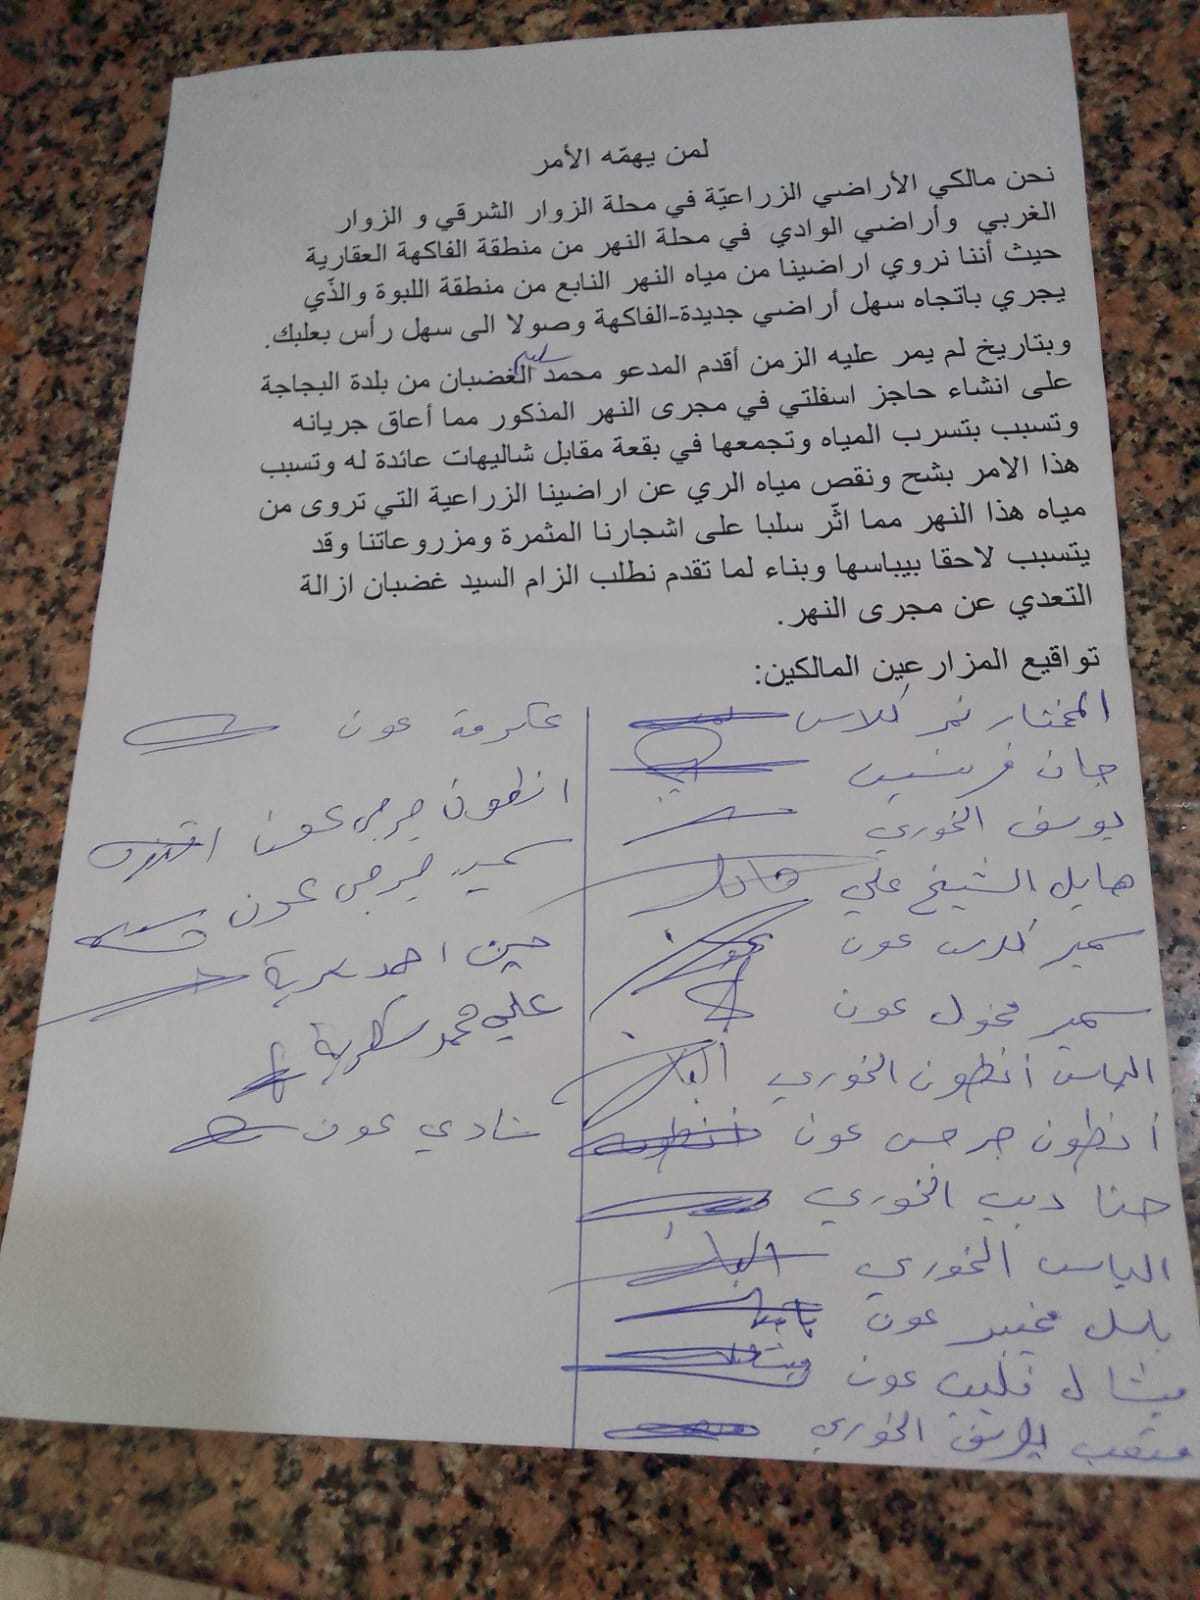 لمن يهمّه الأمر
نحن مالكي الأراضي الزراعيّة في محلة الزوار الشرقي و الزوار
الغربي وأراضي الوادي في محلة النهر من منطقة الفاكهة العقارية
حيث أننا نروي اراضينا من مياه النهر النابع من منطقة اللبوة والذّي
يجري باتجاه سهل أراضي جديدة-الفاكهة وصولا الى سهل رأس بعلبك.
وبتاريخ لم يمر عليه الزمن أقدم المدعو محمد سليم الغضبان من بلدة البجاجة
على انشاء حاجز اسفلتي في مجرى النهر المذكور مما أعاق جريانه
وتسبب بتسرب المياه وتجمعها في بقعة مقابل شاليهات عائدة له وتسبب
هذا الامر بشح ونقص مياه الري عن اراضينا الزراعية التي تروى من
مياه هذا النهر مما اثّر سلبا على اشجارنا المثمرة ومزروعاتنا وقد
يتسبب لاحقا بيباسها وبناء لما تقدم نطلب الزام السيد غضبان ازالة
التعدي عن مجرى النهر.
تواقيع المزارعين المالكين:
المختار نمر كلاس
جان فرنسيس
يوسف الخوري
هايل الشيخ علي
سمير كلاس عون
سمير مخول عون
الياس أنطون الخوري
أنطون جرجس عون
حنا ديب الخوري
الياس الخوري
باسل مخيبر عون
ميشال فليب عون
متعب يوسف الخوري
عكرمة عون
انطون جرجس عون
سمير جرجس عون
حسين احمد سكرية
علي محمد سكرية
شادي عون